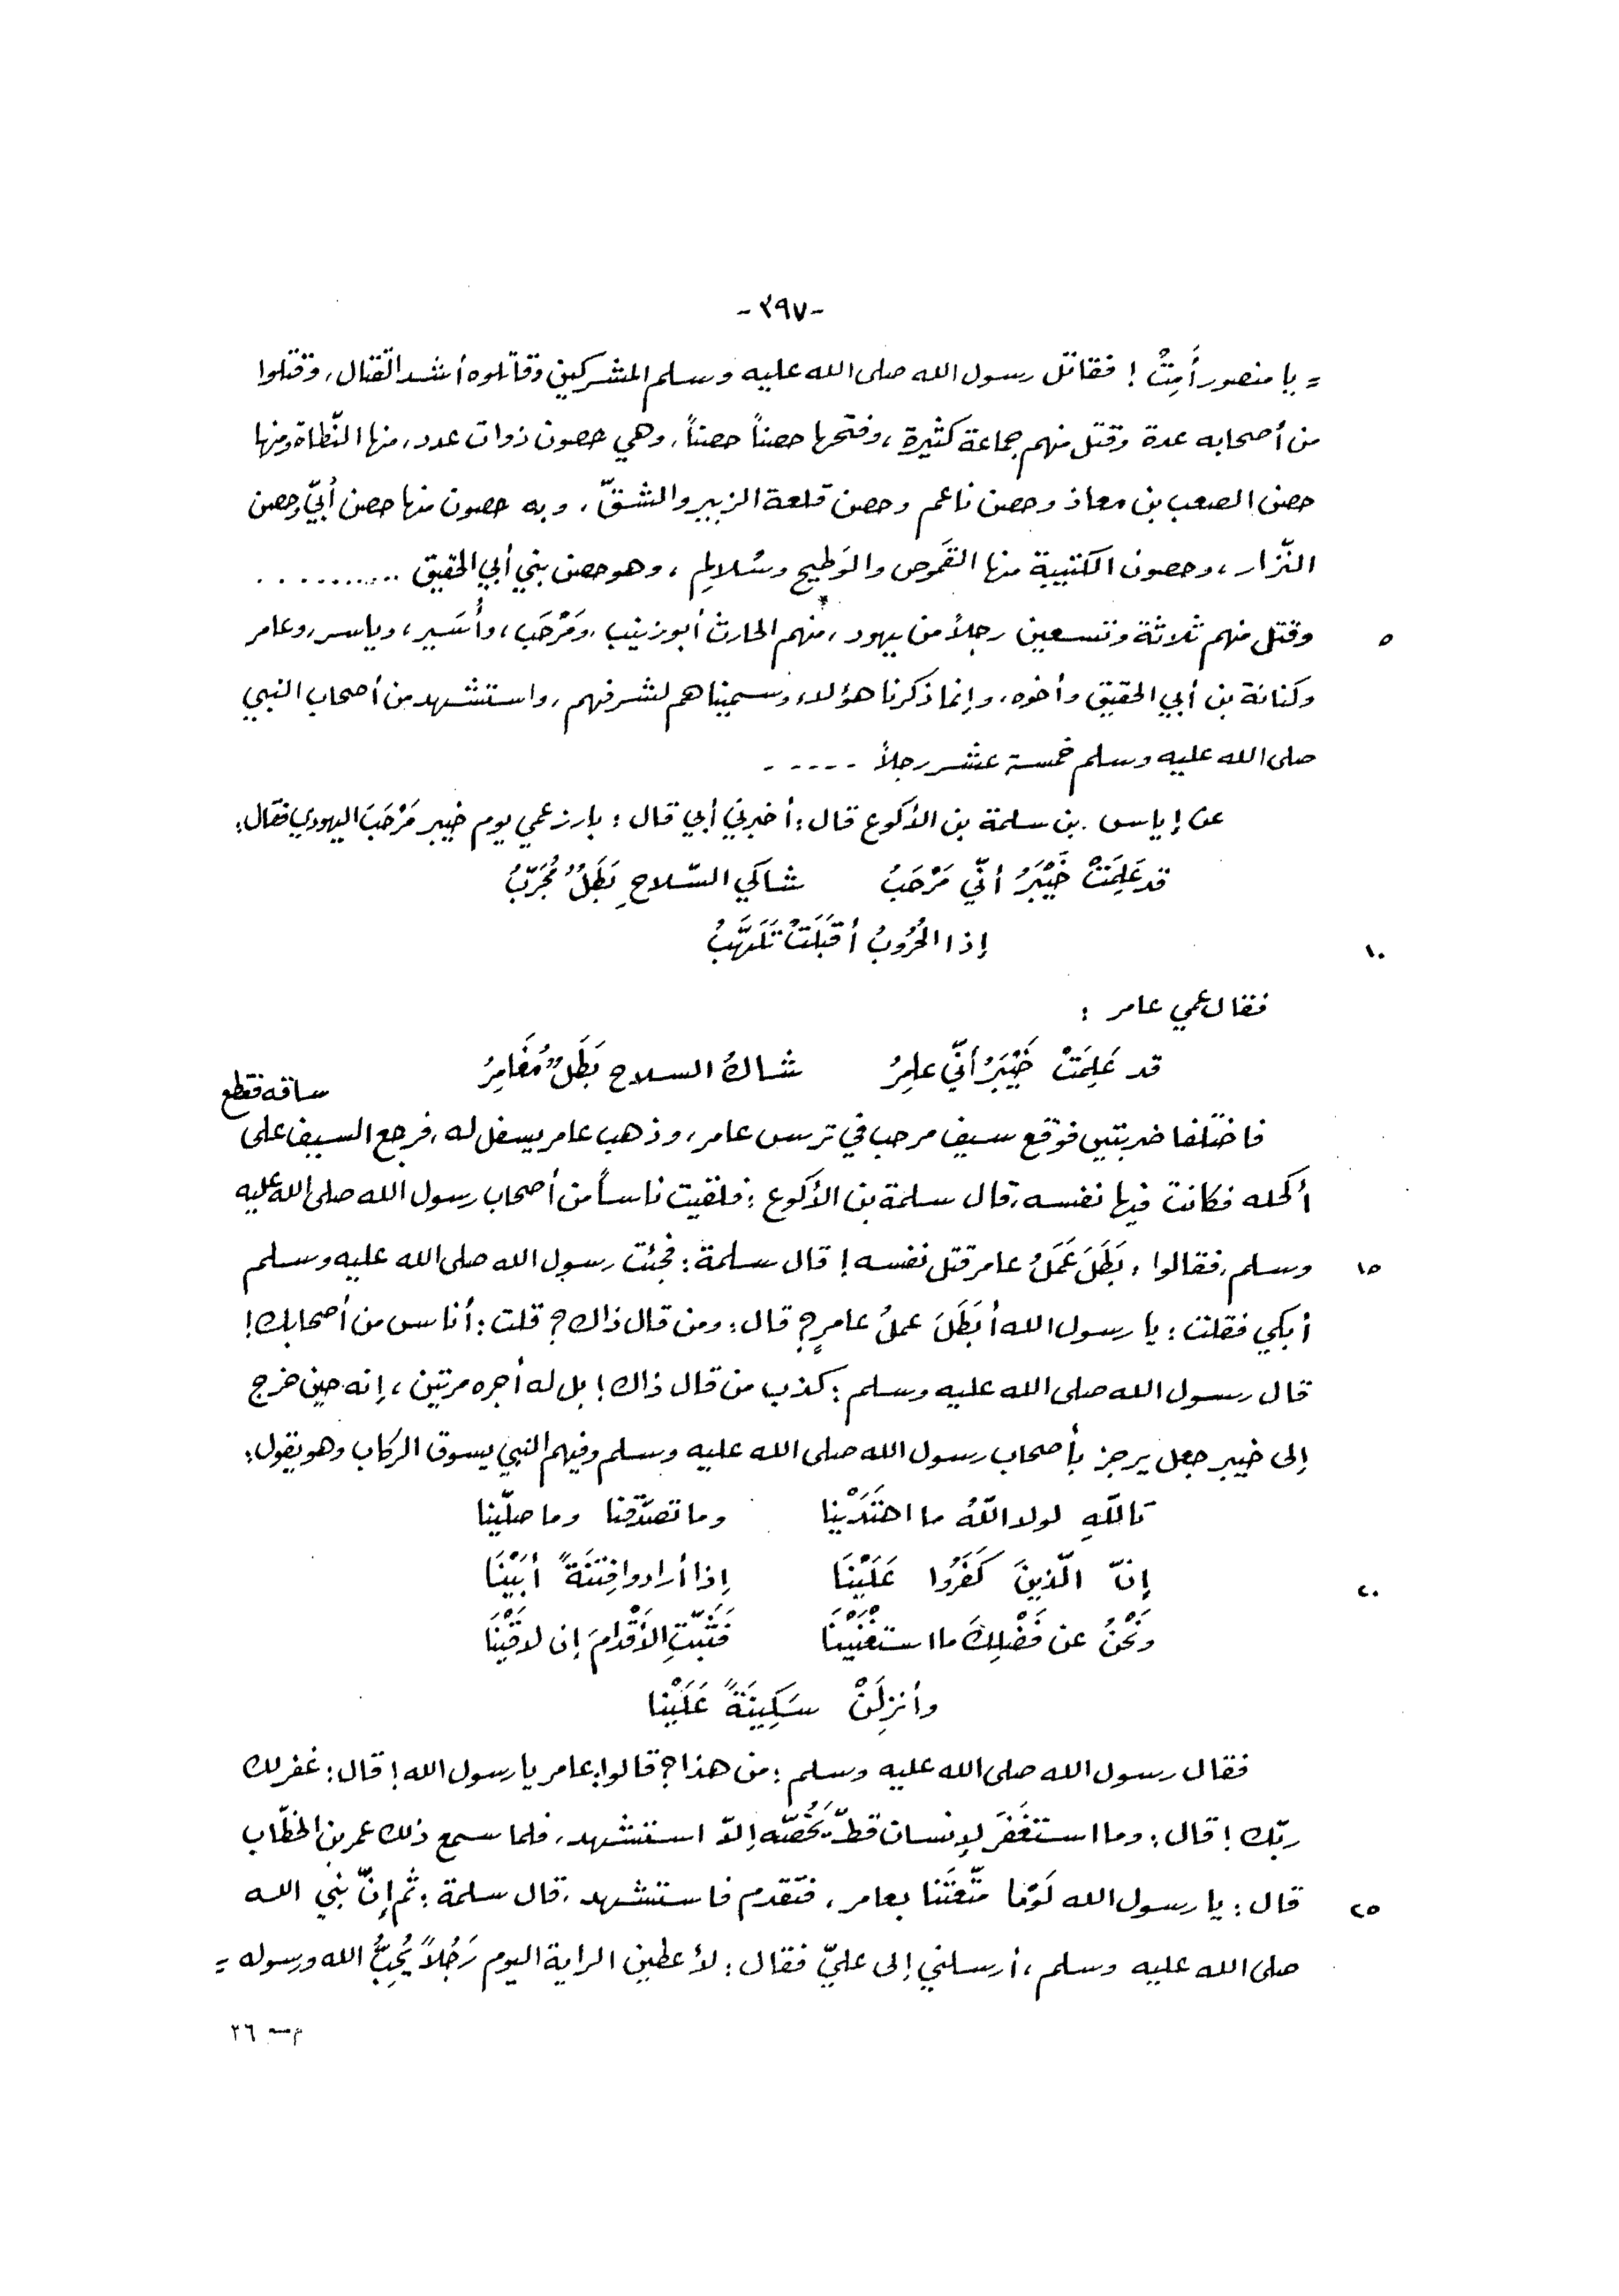 -٣٩٧-
= يا منصور أَمِتْ ! فقاتل رسول الله صلى الله عليه وسلم المشركين وقاتلوه أشد القتال، وقتلوا
من أصحابه عدة وقتل منهم جماعة كثيرة، وفتحها حصناً حصناً، وهي حصون ذوات عدد، منها النّطاة ومنها
حصن الصعب بن معاذ وحصن ناعم وحصن قلعة الزبير والشقّ، وبه حصون منها حصن أُبيّ وحصن
النّزار، وحصون الكتيبة منها القَموص والوَطيح وسُلالِم، وهو حصن بني أبي الحقيق ...........
٥ وقتل منهم ثلاثة وتسعين رجلاً من يهود، منهم الحارث أبو زينب، ومَرْحَب، وأُسَير، وياسر، وعامر
وكنانة بن أبي الحقيق وأخوه، وإنما ذكرنا هؤلاء وسميناهم لشرفهم، واستشهد من أصحاب النبي
صلى الله عليه وسلم خمسة عشر رجلاً - - - - -
عن إياس بن سلمة بن الأكوع قال: أخبرني أبي قال: بارز عمي يوم خيبر مَرْحَبَ اليهودي فقال:
قد عَلِمَتْ خَيْبَرُ أنّي مَرْحَبُ شاكي السّلاحِ بَطَلٌ مُجَرَّبُ
١٠ إذا الحُرُوبُ أقْبَلَتْ تَلَهَّبُ
فقال عمي عامر :
قد عَلِمَتْ خَيْبَرُ أنّي عامِرُ شاكُ السلاح بَطَلٌ مُغَامِرُ
فاختلفا ضربتين فوقع سيف مرحب في ترس عامر، وذهب عامر يسفل له، فرجع السيف على ساقه فقطع
أكحله فكانت فيها نفسه، قال سلمة بن الأكوع: فلقيت ناساً من أصحاب رسول الله صلى الله عليه
١٥ وسلم، فقالوا: بَطَلَ عَمَلُ عامر قتل نفسه! قال سلمة: فجئت رسول الله صلى الله عليه وسلم
أبكي فقلت: يا رسول الله أبَطَلَ عملُ عامرٍ؟ قال: ومن قال ذاك؟ قلت: أناس من أصحابك!
قال رسول الله صلى الله عليه وسلم: كذب من قال ذاك! بل له أجره مرتين، إنه حين خرج
إلى خيبر جعل يرجز بأصحاب رسول الله صلى الله عليه وسلم وفيهم النبي يسوق الركاب وهو يقول:
تاللّهِ لولا اللّهُ ما اهتَدَيْنا وما تصدّقنا وما صلّينا
٢٠ إنّ الّذينَ كَفَرُوا عَلَيْنَا إذا أرادوا فِتنَةً أبَيْنَا
ونَحْنُ عن فَضْلِكَ ما استَغْنَيْنَا فَثَبِّتِ الأقْدامَ إن لاقَيْنَا
وأنزِلَنْ سَكِينَةً عَلَيْنا
فقال رسول الله صلى الله عليه وسلم: من هذا؟ قالوا: عامر يا رسول الله! قال: غفر لك
ربّك! قال: وما استغفَرَ لإنسان قطّ يَخُصّه إلاّ استشهد، فلما سمع ذلك عمر بن الخطّاب
٢٥ قال: يا رسول الله لَوْما متّعتَنا بعامر، فتقدم فاستشهد، قال سلمة: ثم إنّ نبي الله
صلى الله عليه وسلم، أرسلني إلى عليّ فقال: لأعطين الراية اليوم رَجُلاً يُحِبُّ الله ورسوله =
م- ٢٦